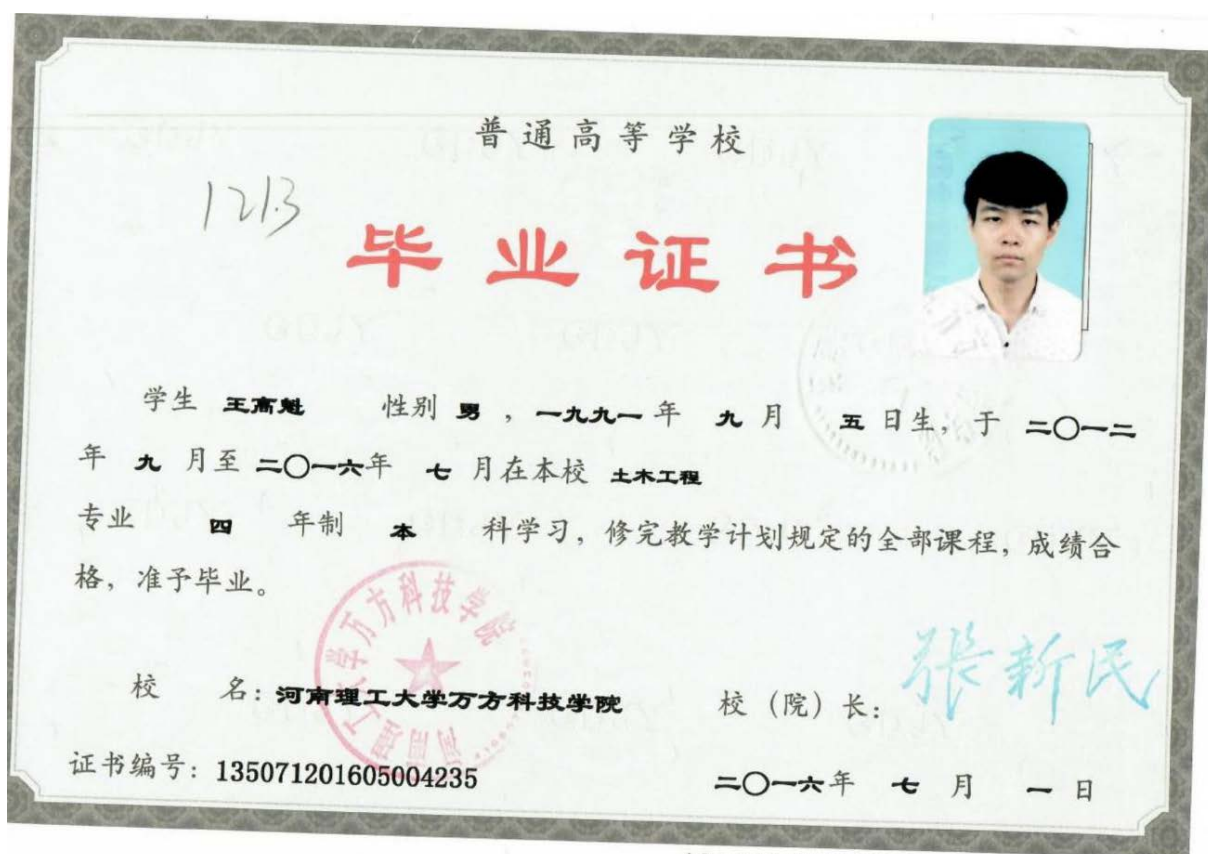 普通高等学校
1213
毕业证书
学生 王高魁 性别 男 ，一九九一 年 九 月 五 日生，于 二〇一二
年 九 月至 二〇一六 年 七 月在本校 土木工程
专业 四 年制 本 科学习，修完教学计划规定的全部课程，成绩合
格，准予毕业。
校 名：河南理工大学万方科技学院 校（院）长：张新民
河南理工大学万方科技学院
证书编号：135071201605004235 二〇一六 年 七 月 一 日